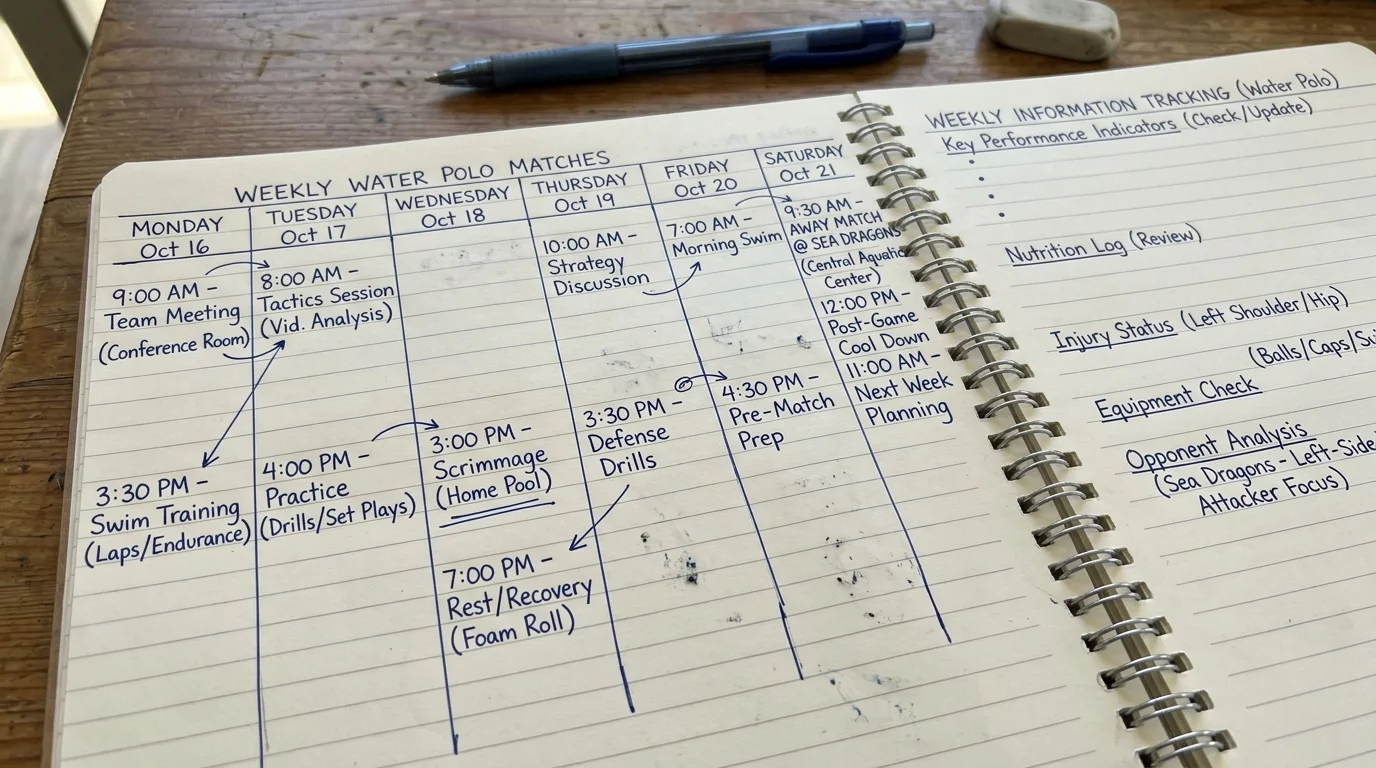 WEEKLY WATER POLO MATCHES
MONDAY
Oct 16
9:00 AM –
Team Meeting
(Conference Room)
3:30 PM –
Swim Training
(Laps/Endurance)
TUESDAY
Oct 17
8:00 AM –
Tactics Session
(Vid. Analysis)
4:00 PM –
Practice
(Drills/Set Plays)
WEDNESDAY
Oct 18
3:00 PM –
Scrimmage
(Home Pool)
7:00 PM –
Rest/Recovery
(Foam Roll)
THURSDAY
Oct 19
10:00 AM –
Strategy
Discussion
3:30 PM –
Defense
Drills
FRIDAY
Oct 20
7:00 AM –
Morning Swim
4:30 PM –
Pre-Match
Prep
SATURDAY
Oct 21
9:30 AM –
AWAY MATCH
@ SEA DRAGONS
(Central Aquatic
Center)
12:00 PM –
Post-Game
Cool Down
11:00 AM –
Next Week
Planning
WEEKLY INFORMATION TRACKING (Water Polo)
Key Performance Indicators (Check/Update)
Nutrition Log (Review)
Injury Status (Left Shoulder/Hip)
(Balls/Caps/
Equipment Check
Opponent Analysis
(Sea Dragons - Left-Side
Attacker Focus)